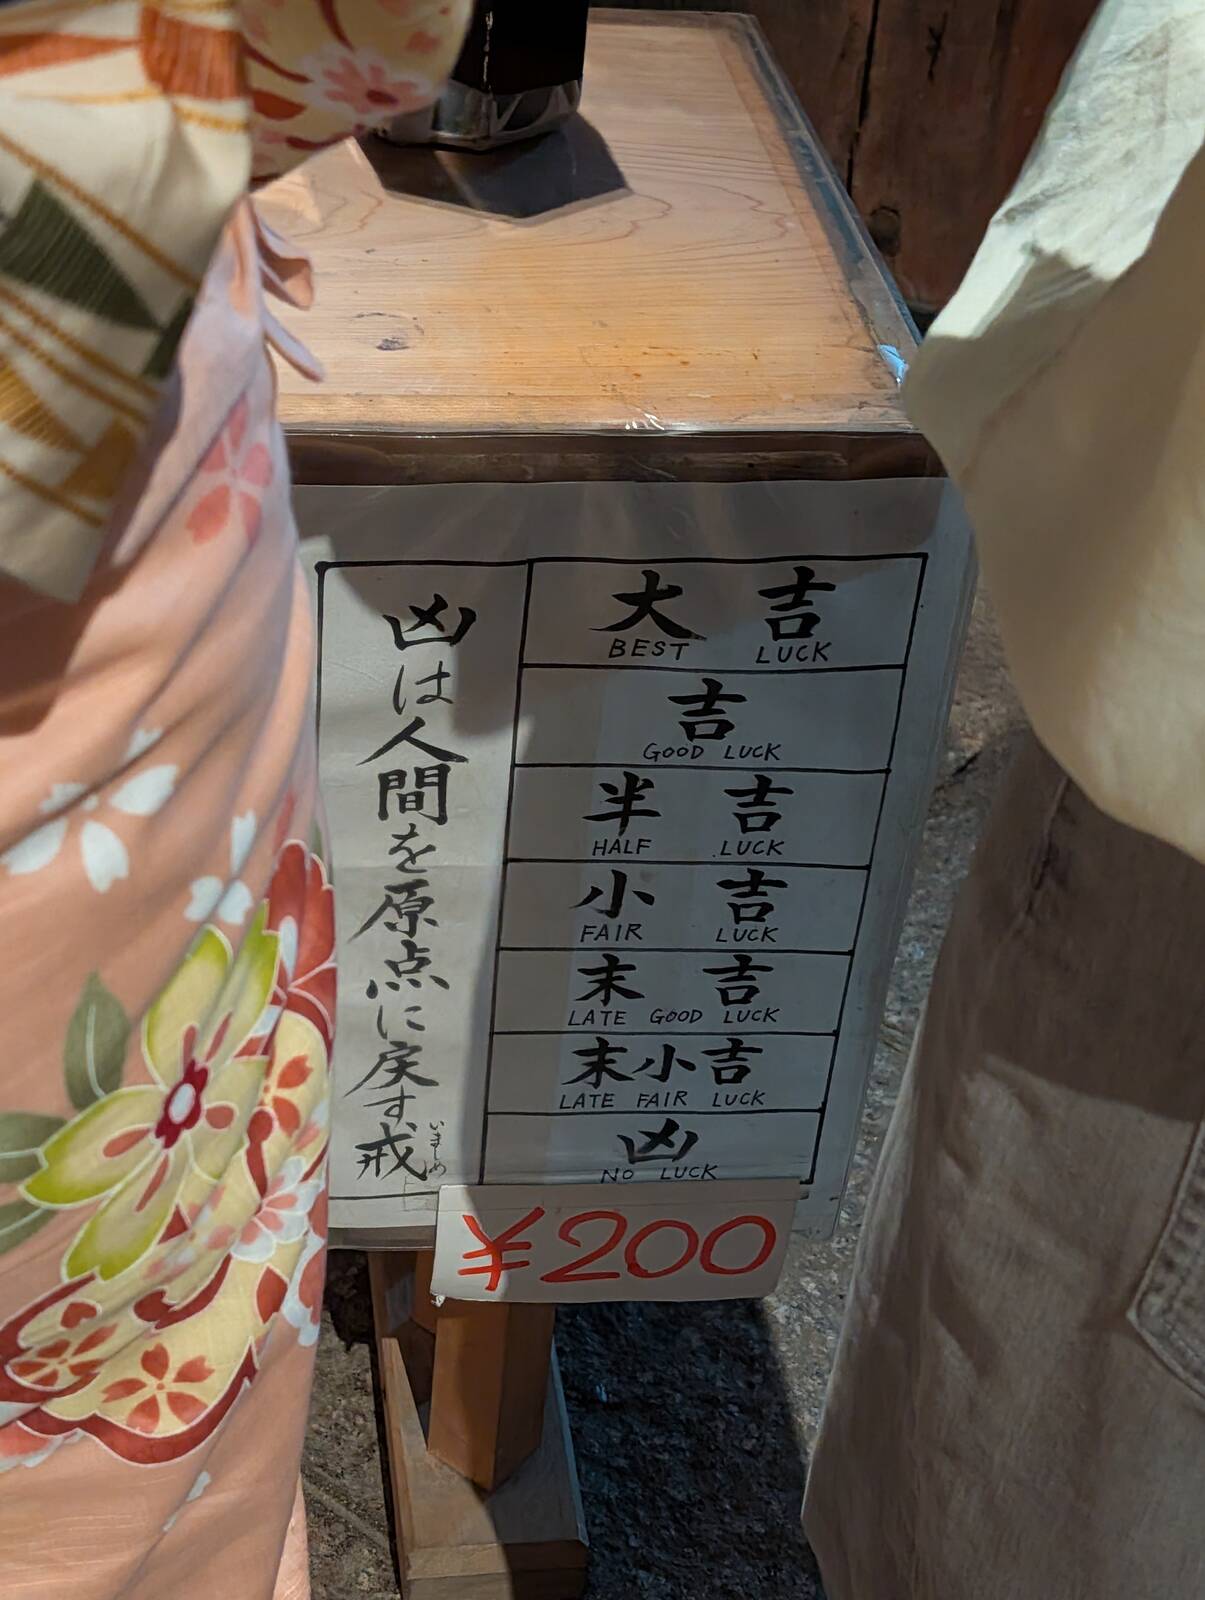 凶は人間を原点に戻す、戒
いましめ
大吉
BEST LUCK
吉
GOOD LUCK
半吉
HALF LUCK
小吉
FAIR LUCK
末吉
LATE GOOD LUCK
末小吉
LATE FAIR LUCK
凶
NO LUCK
¥200